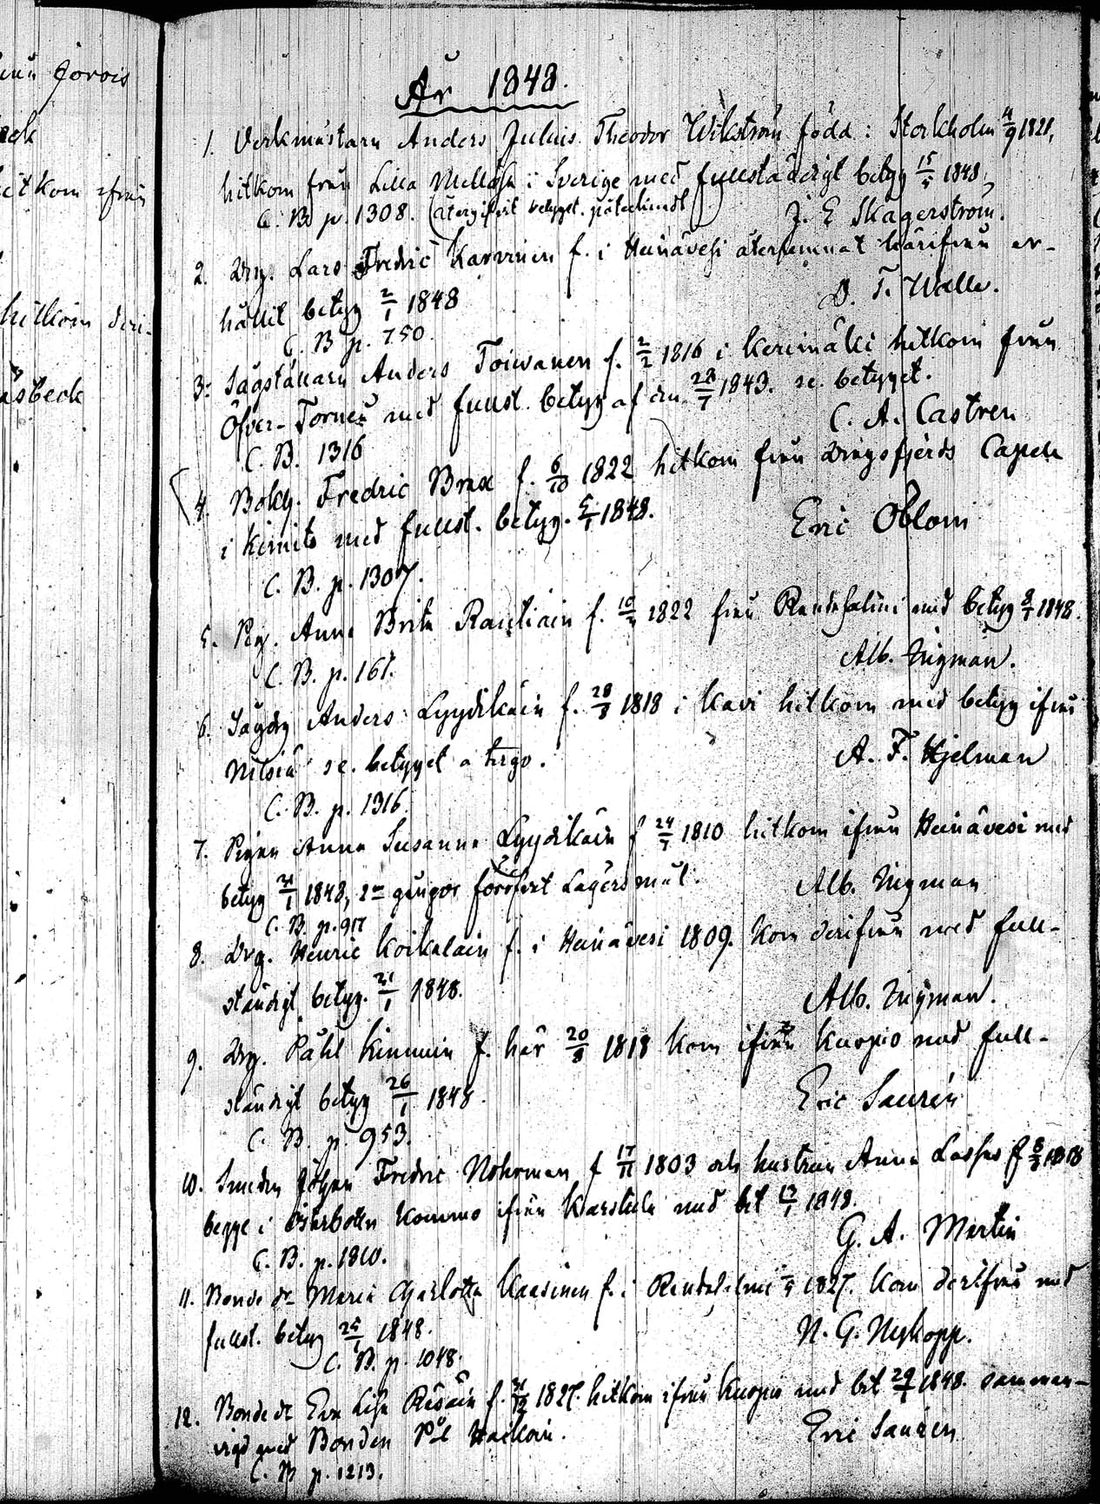 ifrån Jorois
hitkom ifrån
hitkom deri-
År 1848.
1. Verkmästarn Anders Julius Theodor Wikström född i Storkholm 4/9 1821,
hitkom från Lilla Mellösa i Sverige med fullständigt betyg 15/5 1848,
C. B. p. 1308. (återgifvit betyget. J. E Skagerström.
2. Drg. Lars Fredric Karvinen f. i Heinävesi återkommit härifrån er-
hållit betyg 2/1 1848 O. T. Walle.
C. B p. 750.
3. Sågställarn Anders Toiwanen f. 2/2 1816 i Kerimäki hitkom från
Öfver-Torneå med fullst. betyg af den 28/7 1843. se. betyget.
C. B. 1316 C. A. Castren
4. Bokh. Fredric Brax f. 6/10 1822 hitkom från Dragsfjerds Capell
i Kimito med fullst. betyg. 5/1 1848. Eric Oblom
C. B. p. 1307.
5. Pig. Anna Brita f. 1822 från Randasalmi med betyg 8/1 1848.
C. B. p. 167. Alb. Nigman.
6. Sågdrg Anders Lyydikäin f. 28/8 1818 i Kavi hitkom med betyg ifrån
Nilsiä se. betyget a tergo. A. F. Hjelman
C. B. p. 1316.
7. Pigan Anna Susanna Lyydikäin f 24/7 1810 hitkom ifrån Heinävesi med
betyg 21/1 1848, 2ne gångor föröfvat Lägersmål. Alb. Nigman
C. B. p. 917
8. Drg. Henric Koikalain f. i Heinävesi 1809. Kom derifrån med full-
ständigt betyg. 21/1 1848. Alb. Nigman.
9. Drg. Påhl Kinnuin f. här 20/8 1818 Kom ifrån Kuopio med full-
ständigt betyg 26/1 1848. Eric Saurén
C. B. p. 953.
10. Smeden Johan Fredric Nohrman f 17/11 1803 och hustrun Anna f
begge i Österbotten komne ifrån Karstula med bet 17/1 1848.
C. B. p. 1810. G. A. Mertin
11. Bonde dr Maria Charlotta Kaasinen f. i Randasalmi 1827. Kom derifrån med
fullst. betyg 25/1 1848. N. G. Nykopp.
C. B. p. 1048.
12. Bonde dr Eva Lisa f. 1827. hitkom ifrån Kuopio med bet 29/1 1848. samman-
vigd med Bonden Pål Eric Saurén
C. B p. 1213.